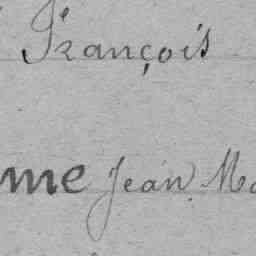 François
me Jean Ma